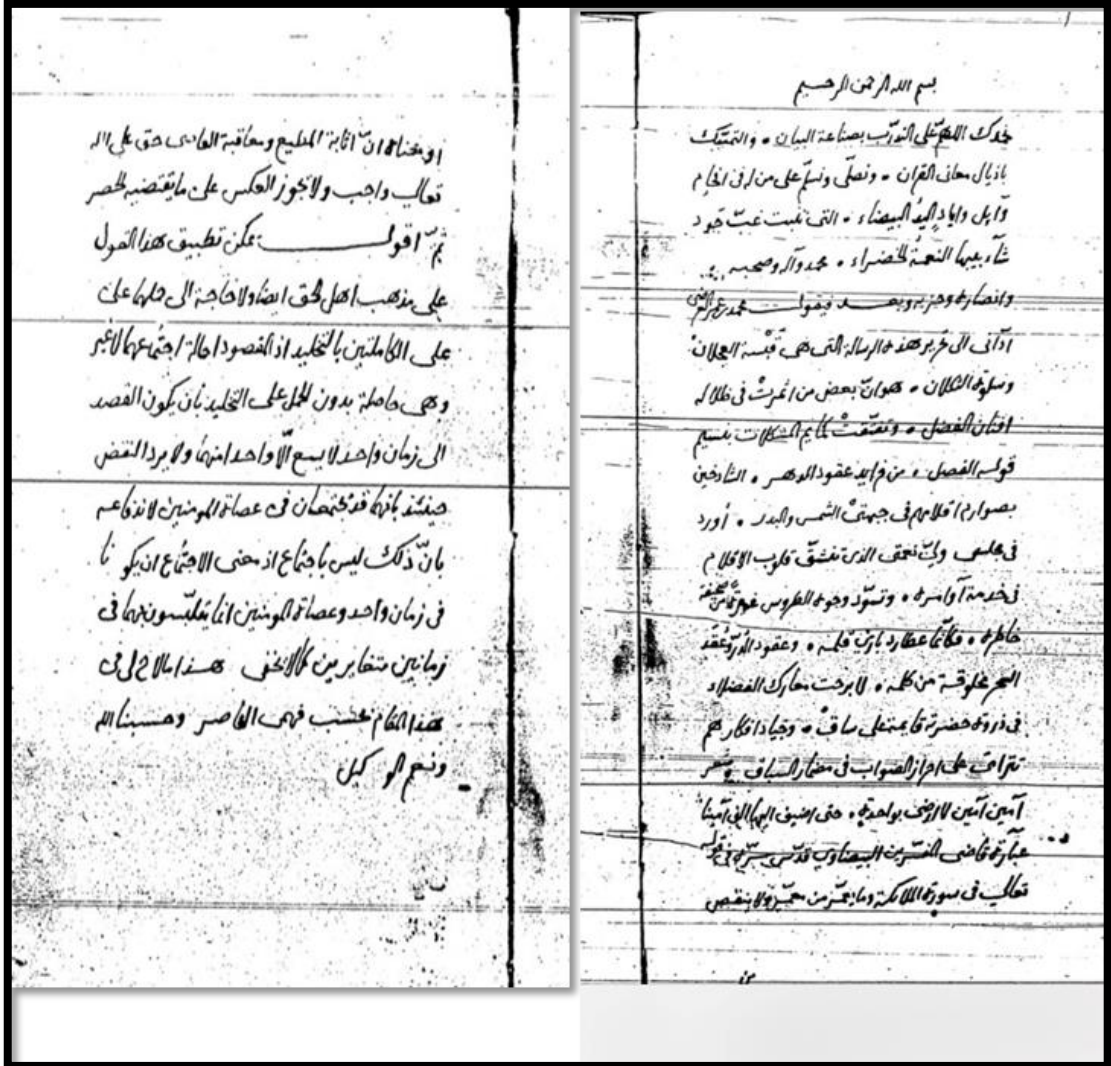 بسم الله الرحمن الرحيم
نحمدك اللهم على التدرّب بصناعة البيان ۰ والتمسّك
باذيال معانى القران ۰ ونصلّى ونسلّم على من له فى انحام
وايادٍ اليدُ البيضاء ۰ التى نبت غبّ جود
شآبيبها النعمة الخضراء ۰ محمد وآله وصحبه
وانصاره وحزبه وبعد فيقول محمد
ادّانى الى تحرير هذه الرسالة التى هى قبسة العجلان
وسلوة الثكلان ۰ هو انّ بعض من اثمرتْ فى ظلاله
افنان الفضل ۰ وتفتّقتْ كمايم المشكلات بنسيم
قوله الفصل ۰ من فرايد عقود الدهر ۰ الشادخين
بصوارم اقلامهم فى جبهتىْ الشمس والبدر ۰ أورد
فى مجلس الذى تنشقّ قلوب الاقلام
فى خدمة أوامره ۰ وتسوّد وجوه الطروس
خاطره ۰ فكأنّما عطارد بارى قلمه ۰ وعقود الدُرّ وعُقَد
السحر مخلوقة من كلمه ۰ لا برحت معارك الفضلاء
فى ذروة حضرته قايمة على ساقْ ۰ وجياد افكارهم
تترامى على احراز الصواب فى مضمار السباق شعر
آمين آمين لا ارضى بواحدةٍ ۰ حتى اضيف اليها الف آمينا
عبارة قاضى المفسّرين البيضاوى قدّس سرّه فى قوله
تعالى فى سورة الملائكة وما يعمّر من معمّر ولا ينقص
من
او معناه انّ اثابة المطيع ومعاقبة العاصى حق على الله
تعالى واجب ولا يجوز العكس على ما يقتضيه الحصر
ثمّ اقول يمكن تطبيق هذا القول
على مذهب اهل الحق ايضا ولا حاجة الى حملها على
على الكاملتين بالتخليد اذ المقصود احالة اجتماعهما لا غير
وهى حاصلة بدون الحمل على التخليد بأن يكون القصد
الى زمان واحد لا يسع الّا واحدا منهما ولا يرد النقض
حينئذ بانهما قد يجتمعان فى عصاة المومنين لاندفاعه
بانّ ذلك ليس باجتماع اذ معنى الاجتماع ان يكونا
فى زمان واحد وعصاة المومنين انما يتلبّسون بهما فى
زمانين متغايرين كما لا يخفى هذا ما لاح لى فى
هذا المقام بحسب فهمى القاصر وحسبنا الله
ونعم الوكيل